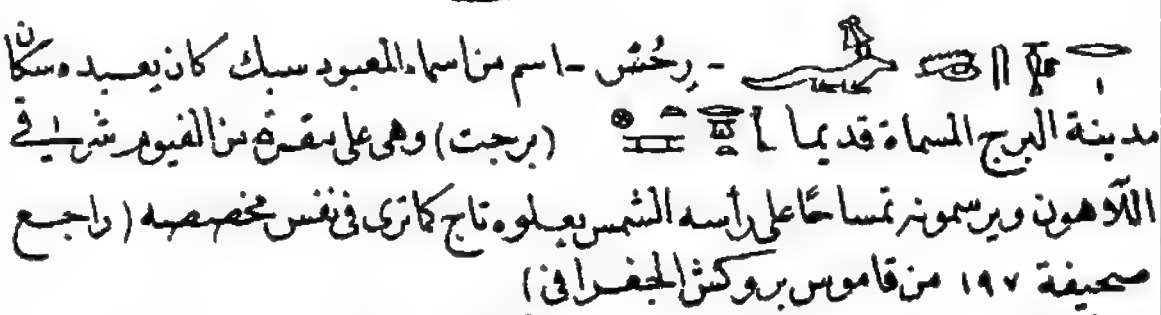 - رِحُسْ - اسم من اسماء المعبود سبك كان يعبده سكان
مدينة البرج المسماة قديما (برجت) وهى على مقربة من الفيوم شرقى
اللآهون ويرسمونه تمساحًا على رأسه الشمس يعلوه تاج كما ترى فى نفس مخصصه (راجع
صحيفة ١٩٧ من قاموس بروكش الجغرافى)